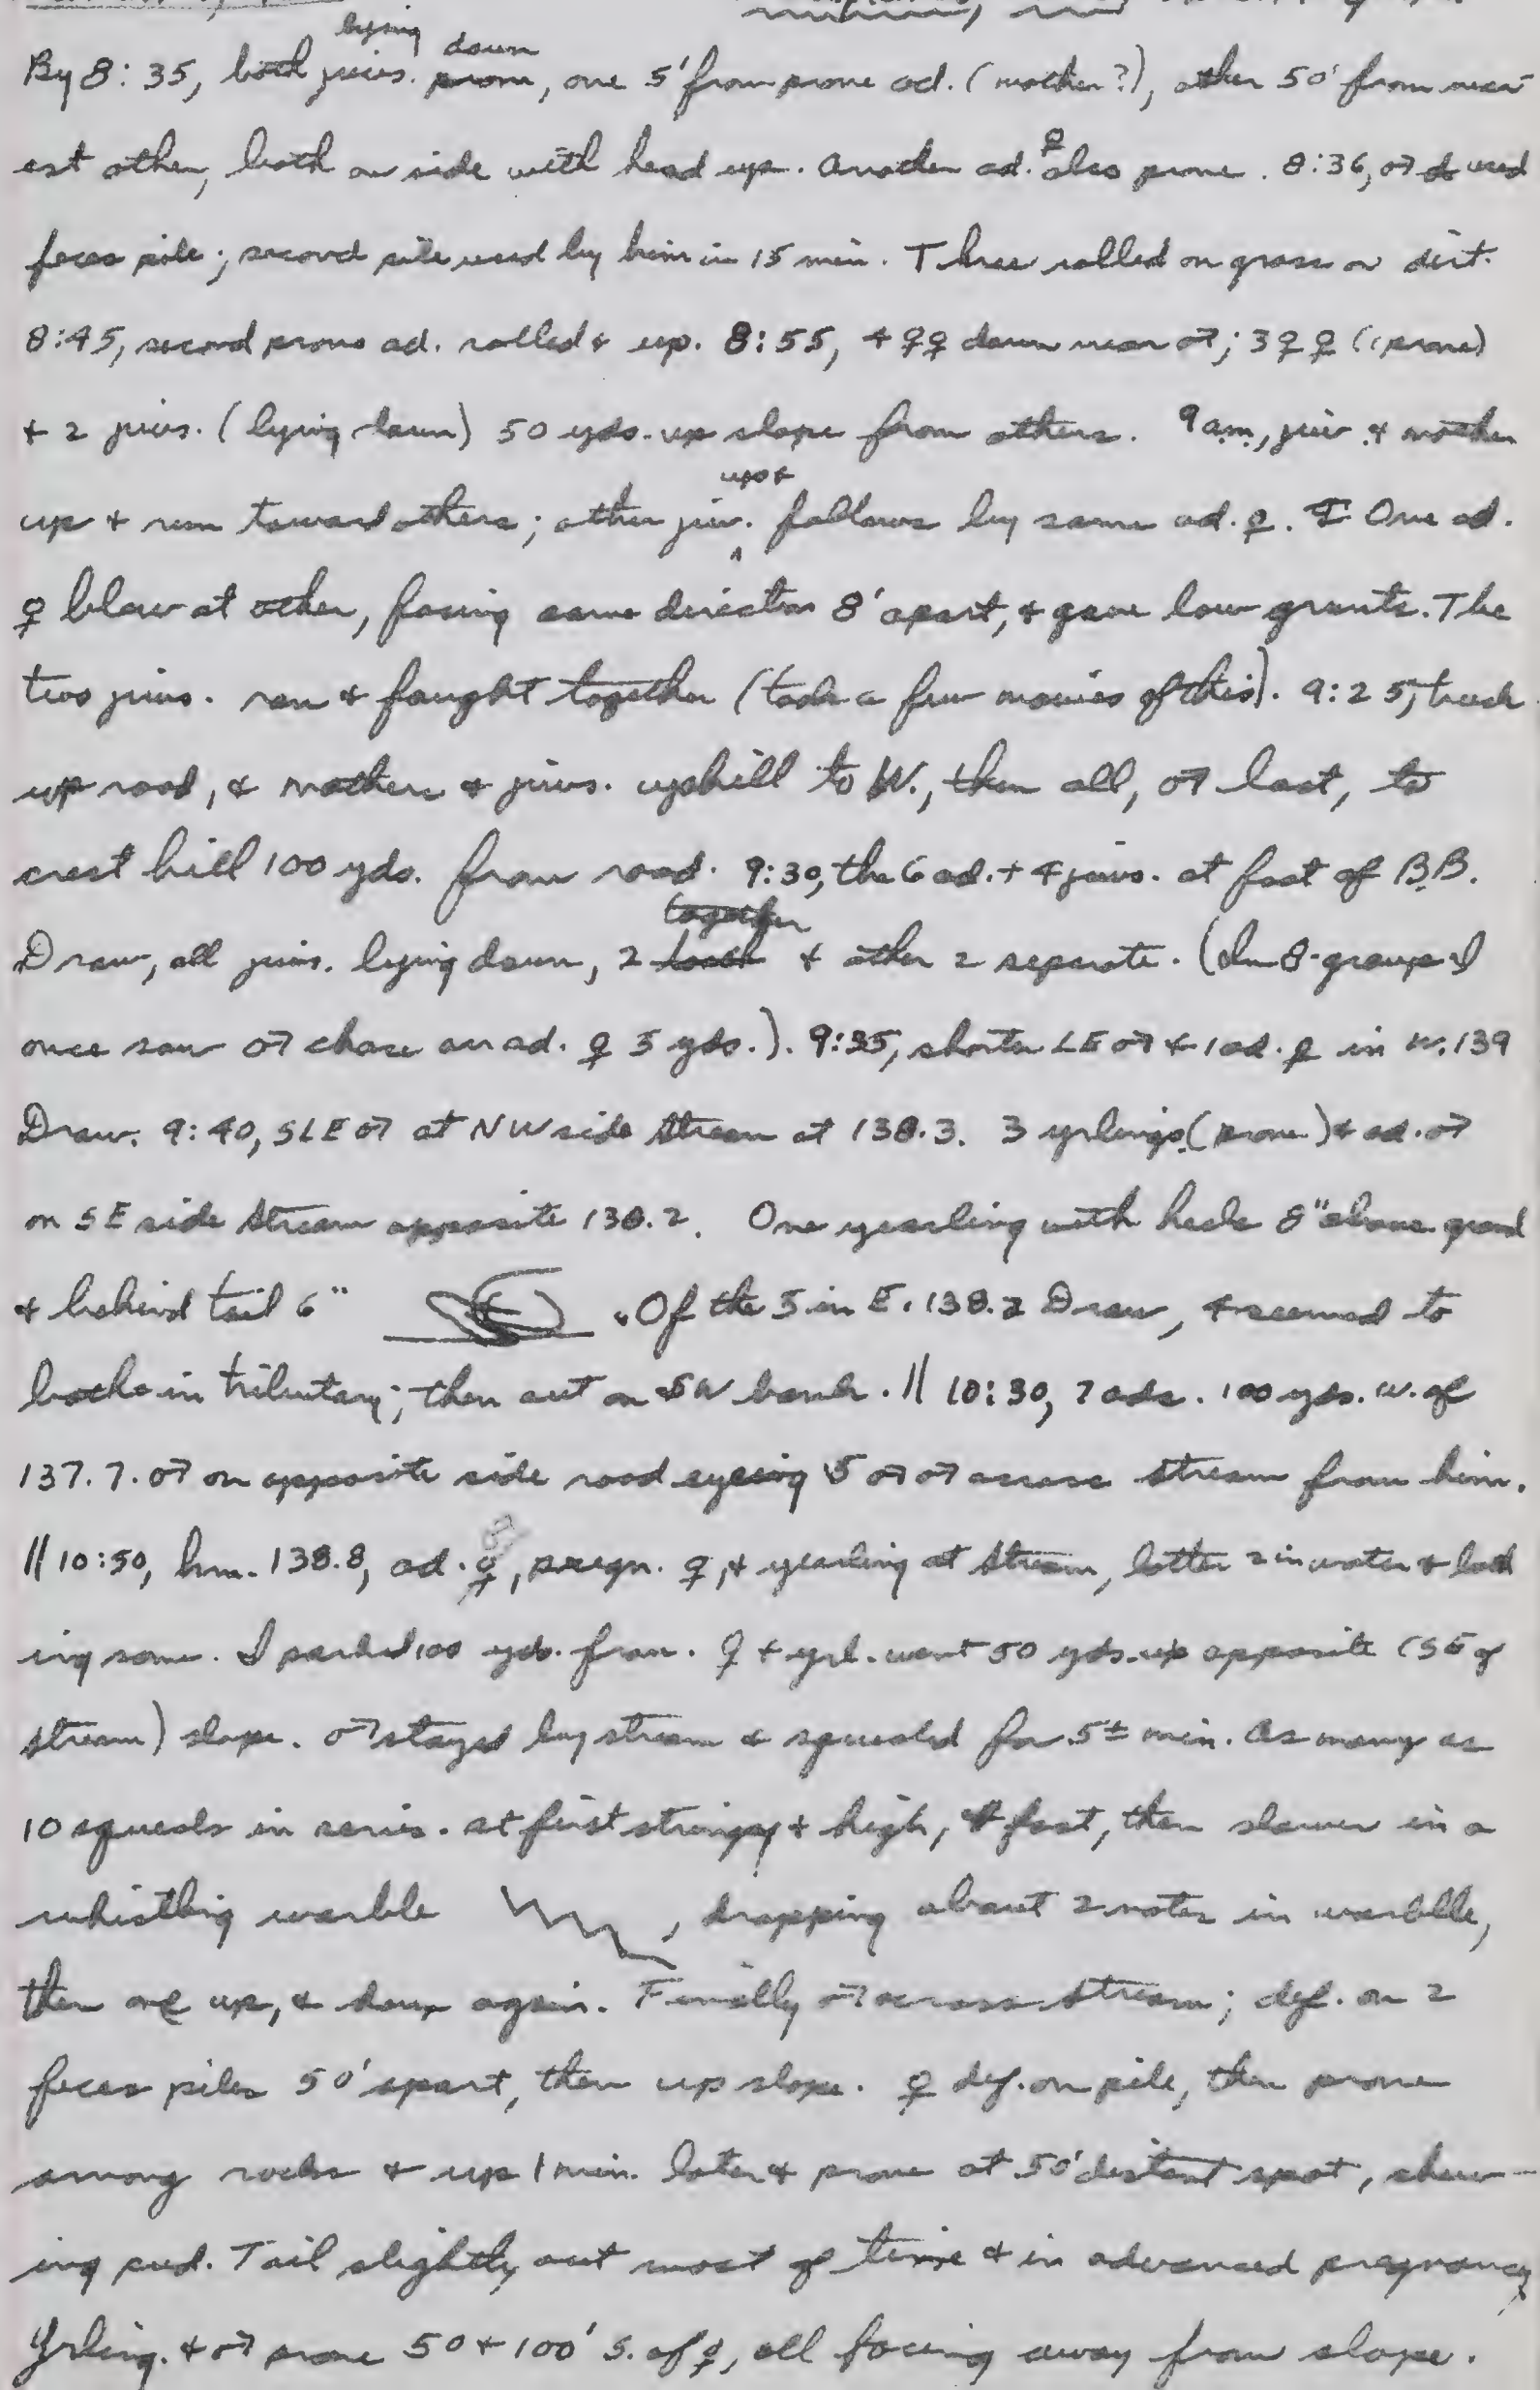 By 8:35, both juvs. lying down, one 5' from prone ad. (mother?), other 50' from near-
est other, both on side with head up. Another ad. ♀ also prone. 8:36, ♂ used
feces pile; second pile used by him in 15 min. Three rolled on grass or dirt.
8:45, second prone ad. rolled & up. 8:55, 4 ♀♀ down near ♂; 3 ♀♀ (1 prone)
+ 2 juvs. (lying down) 50 yds. up slope from others. 9 am, juv & mother
up & run toward others; other juv. up & follows by same ad. ♀. One ad.
♀ blew at other, facing same direction 8' apart, & gave low grunts. The
two juvs. ran & fought together (took a few movies of this). 9:25, truck
up road, & mothers & juvs. uphill to W., then all, ♂ last, to
crest hill 100 yds. from road. 9:30, the 6 ad. + 4 juvs. at foot of B.B.
Draw, all juvs. lying down, 2 together & other 2 separate. (In 8-group I
once saw ♂ chase an ad. ♀ 5 yds.). 9:35, shorter LE ♂ & 1 ad. ♀ in W. 139
Draw. 9:40, SLE ♂ at NW side stream at 138.3. 3 yrlings (prone) & ad. ♂
on SE side stream opposite 138.2. One yearling with heels 8" above ground
& behind tail 6" . Of the 5 in E. 138.2 Draw, 4 seemed to
bathe in tributary; then out on SW bank. || 10:30, 7 ads. 100 yds. W. of
137.7. ♂ on opposite side road eyeing 5 ♂♂ across stream from him.
|| 10:50, hm. 138.8, ad. ♂, pregn. ♀, & yearling at stream, latter 2 in water & bath
ing some. I parked 100 yds. from. ♀ + yrl. went 50 yds. up opposite (SE of
stream) slope. ♂ stayed by stream & squealed for 5± min. As many as
10 squeals in series. At first strong & high, & fast, then slower in a
whistling warble , dropping about 2 notes in warble,
then one up, & down again. Finally ♂ across stream; def. on 2
feces piles 50' apart, then up slope. ♀ def. on pile, then prone
among rocks & up 1 min. later & prone at 50' distant spot, chew-
ing cud. Tail slightly out most of time & in advanced pregnancy.
Yrling. & ♂ prone 50 + 100' S. of ♀, all facing away from slope.